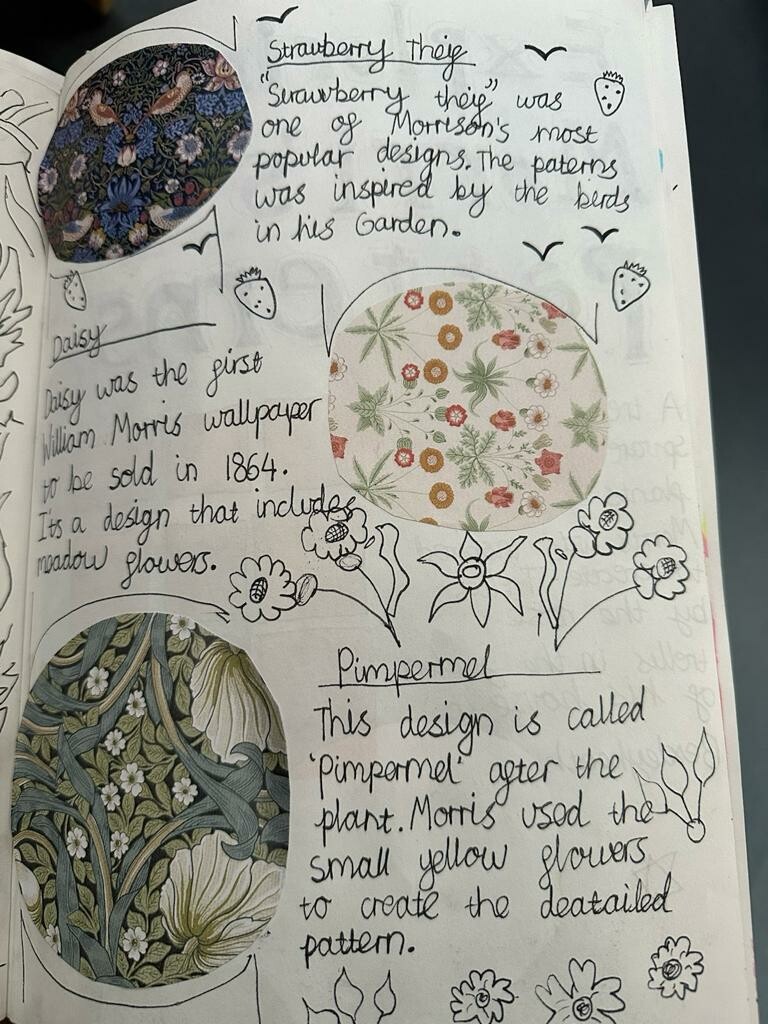 Strawberry Theif
"Strawberry theif" was
one of Morrison's most
popular designs. The paterns
was inspired by the berds
in his Garden.
Daisy
Daisy was the first
William Morris wallpaper
to be sold in 1864.
It's a design that includes
meadow flowers.
Pimpermel
This design is called
'Pimpermel' after the
plant. Morris used the
small yellow flowers
to create the deatailed
pattern.